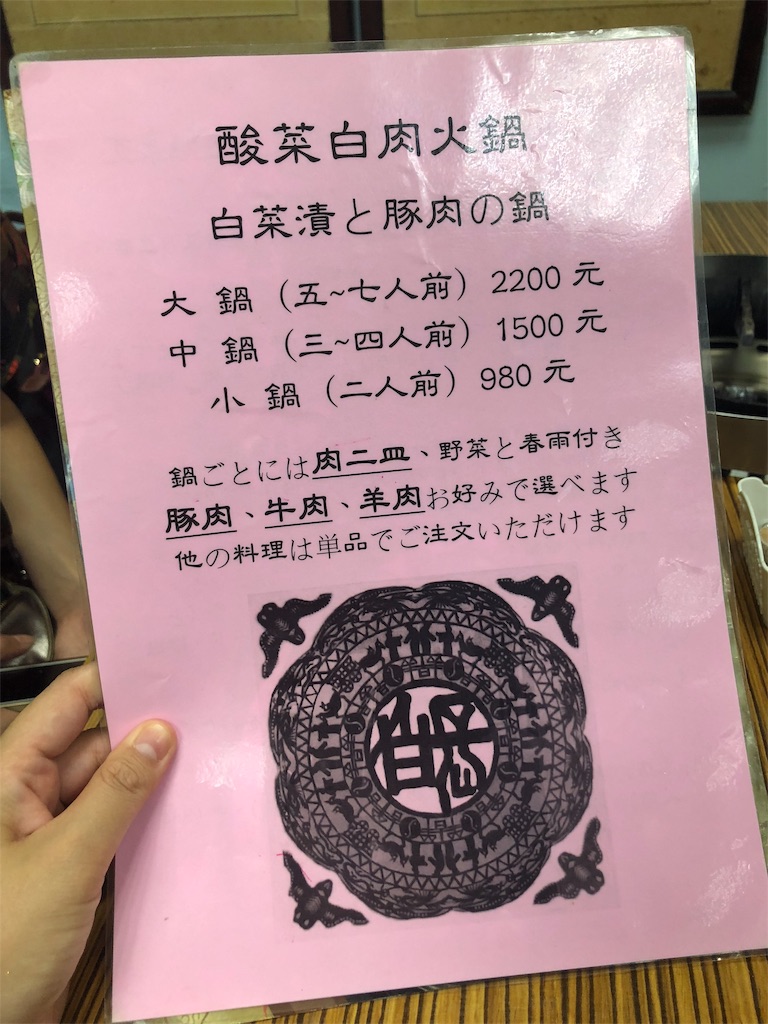 酸菜白肉火鍋
白菜漬と豚肉の鍋
大 鍋（五~七人前）2200 元
中 鍋（三~四人前）1500 元
小 鍋（二人前）980 元
鍋ごとには肉二皿、野菜と春雨付き
豚肉、牛肉、羊肉お好みで選べます
他の料理は単品でご注文いただけます